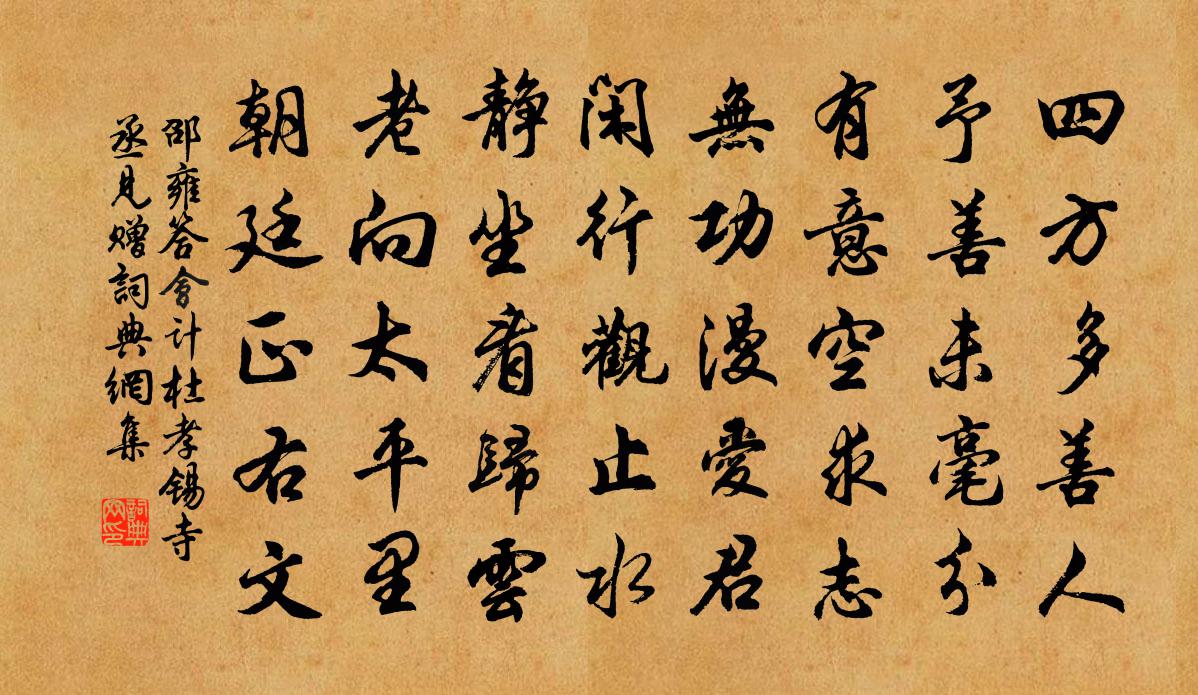 四方多善人
予善未毫分
有意空求志
無功漫愛君
閑行觀止水
静坐看歸雲
老向太平里
朝廷正右文
邵雍答會計杜孝錫寺
丞見贈詞典網集
詞典
网印